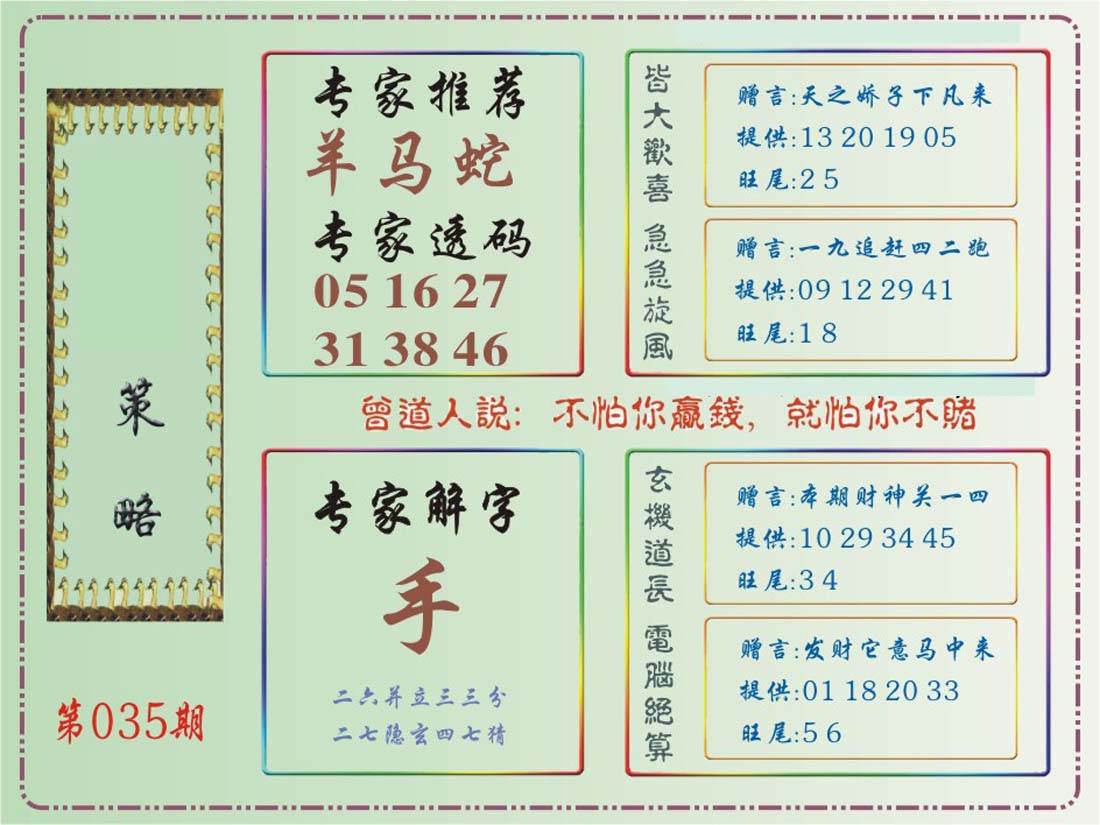 策略
第035期
专家推荐
羊马蛇
专家透码
05 16 27
31 38 46
皆大歡喜
赠言:天之娇子下凡来
提供:13 20 19 05
旺尾:2 5
急急旋風
赠言:一九追赶四二跑
提供:09 12 29 41
旺尾:1 8
曾道人説: 不怕你贏錢, 就怕你不賭
专家解字
手
二六并立三三分
二七隐玄四七猜
玄機道長
赠言:本期财神关一四
提供:10 29 34 45
旺尾:3 4
電腦絕算
赠言:发财它意马中来
提供:01 18 20 33
旺尾:5 6